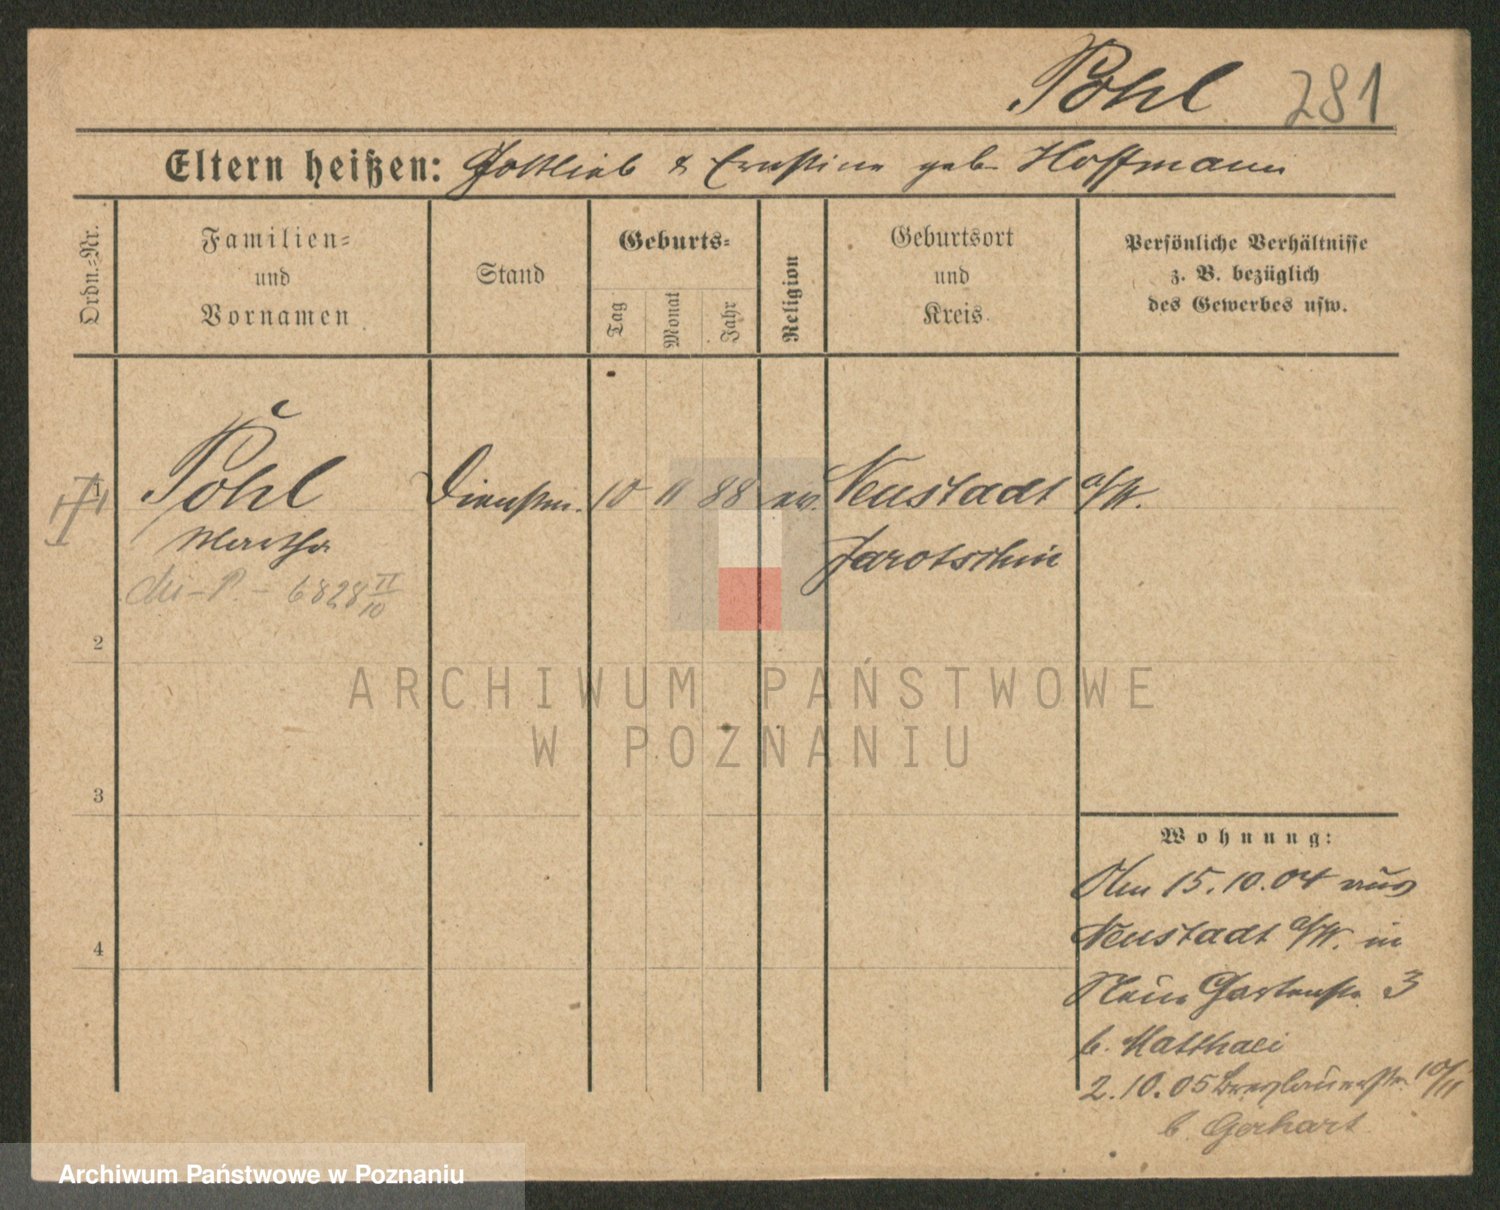 Pohl 281
Eltern heißen: Gottlieb & Ernstine geb. Hoffmann
Ordn.-Nr.
Familien-
und
Vornamen
Stand
Geburts-
Tag
Monat
Jahr
Religion
Geburtsort
und
Kreis.
Persönliche Verhältnisse
z. B. bezüglich
des Gewerbes usw.
1 Pohl Dienstm. 10 11 88 ev. Neustadt a/W.
Martha Jarotschin
6828 II/10
2
3
4
Wohnung:
Am 15.10.04 aus
Neustadt a/W. in
Gartenstr. 3
b. Matthaei
2.10.05 Breslauerstr. 10/11
b. Gerhart
ARCHIWUM PAŃSTWOWE
W POZNANIU
Archiwum Państwowe w Poznaniu